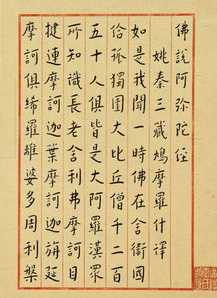 佛說阿弥陀經
姚秦三藏鳩摩羅什譯
如是我聞一時佛在舍衛國
給孤獨園大比丘僧千二百
五十人俱皆是大阿羅漢眾
所知識長老舍利弗摩訶目
揵連摩訶迦葉摩訶迦旃延
摩訶俱絺羅離婆多周利槃